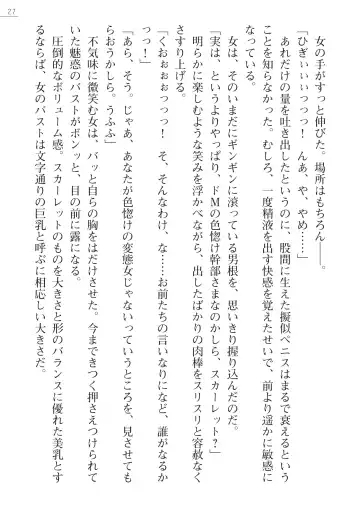 27
女の手がすっと伸びた。場所はもちろん――。
「ひぎぃぃぃっっっ！　んぁ、や、やめ……」
あれだけの量を吐き出したというのに、股間に生えた擬似ペニスはまるで衰えるという
ことを知らなかった。むしろ、一度精液を出す快感を覚えたせいで、前より遥かに敏感に
なっている。
女は、そのいまだにギンギンに滾っている男根を、思いきり握り込んだのだ。
「実は、というよりやっぱり、ドＭの色惚け幹部さまなのかしら、スカーレット？」
明らかに楽しむような笑みを浮かべながら、出したばかりの肉棒をスリスリと容赦なく
さすり上げる。
「くおぉぉぉっっっ！　そ、そんなわけ、な……お前たちの言いなりになど、誰がなるか
っっ！」
「あら、そう。じゃあ、あなたが色惚けの変態女じゃないってところを、見させても
らおうかしら。うふふ」
不気味に微笑む女は、バッと自らの胸をはだけさせた。今まできつく押さえつけられて
いた魅惑のバストがボンッと、目の前に露になる。
圧倒的なボリューム感。スカーレットのものを大きさと形のバランスに優れた美乳とす
るならば、女のバストは文字通りの巨乳と呼ぶに相応しい大きさだ。